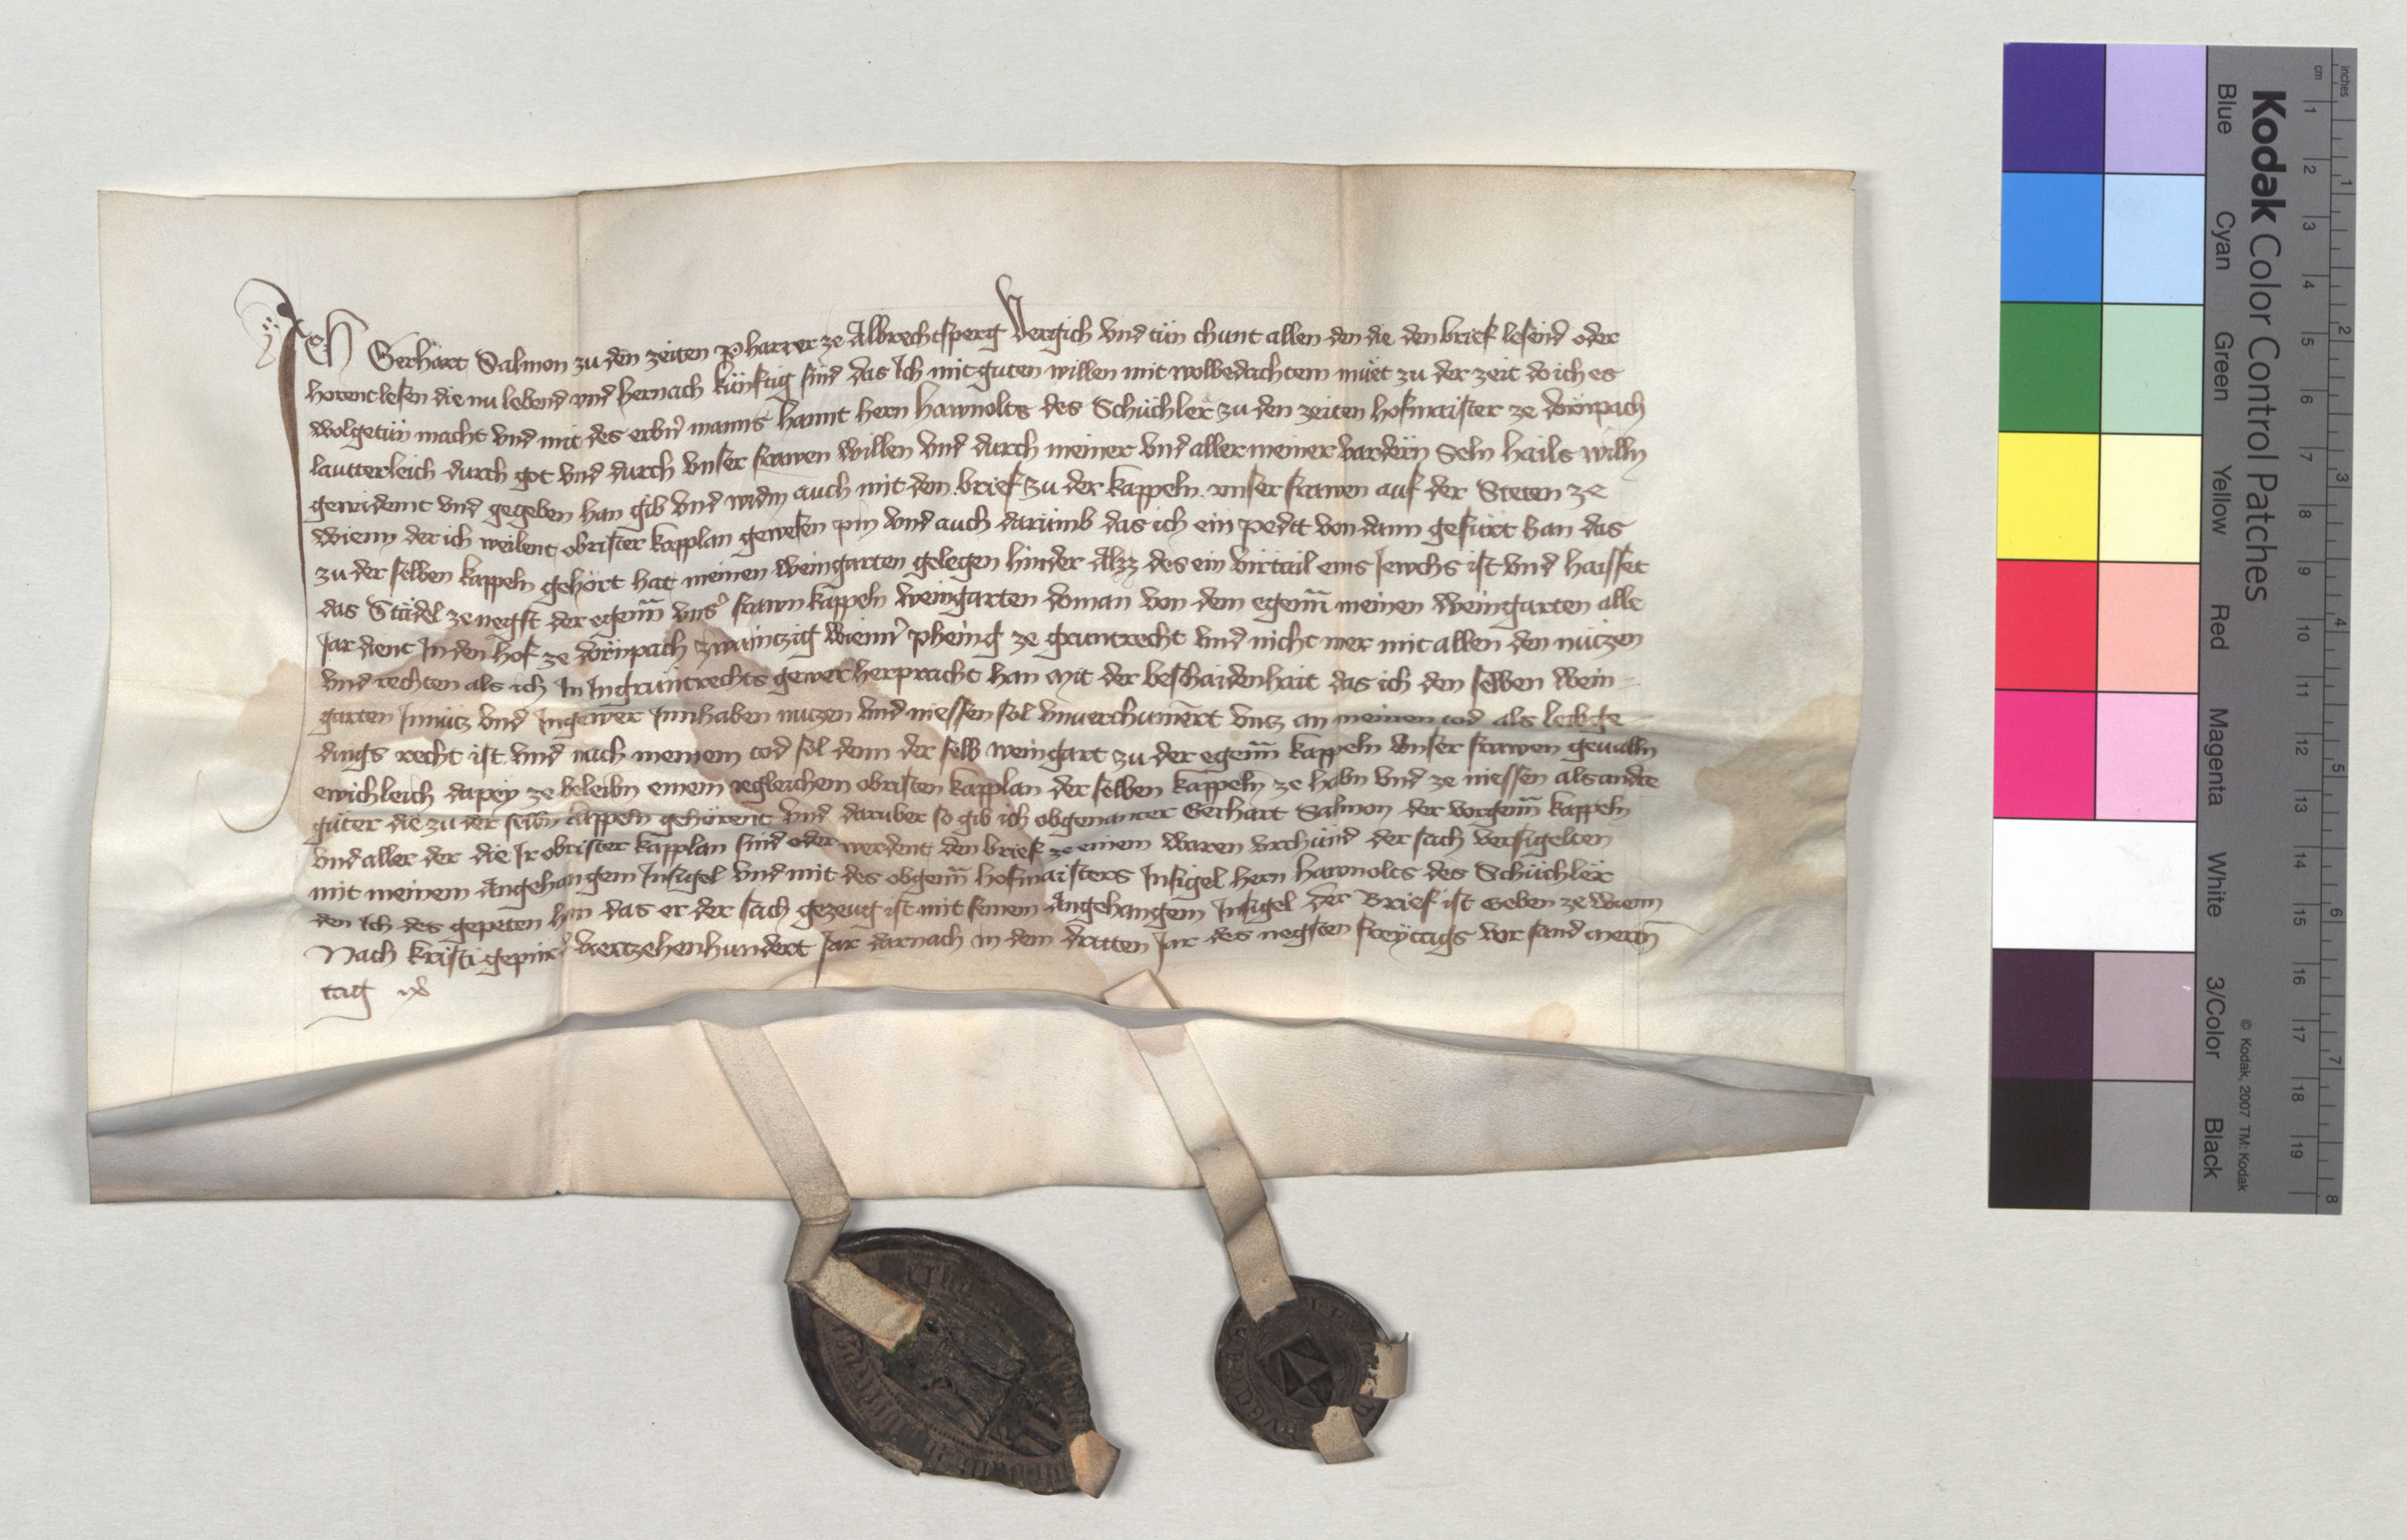 Ich Gerhart Salmon zu den zeiten Pharrer ze Albrechtsperg Vergich vnd tün chunt allen den die den brief lesend oder
horent lesen die nu lebend vnd hernach künftig sind das Ich mit guten willen mit wolbedachtem müet zu der zeit do ich es
wolgetün macht vnd mit des erbn̄ manns hannt hern hawnolts des Schüchler zu den zeiten hofmaister ze dörnpach
lautterleich durch got vnd durch vnser frawen willen vnd durch meiner vnd aller meiner vardern Seln hails willn
gewidemt vnd gegeben han gib vnd widm auch mit dem brief zu der kappeln vnser frawen auf der Steten ze
wienn der ich weilent obrister kapplan gewesen pin vnd auch darumb das ich ein pedtt von dann gefürt han das
zu der selben kappeln gehört hat meinen weingarten gelegen hinder Alzz des ein virtail eins Jewchs ist vnd haisset
das Stüdel ze negst der egenn̄ vns̄ frawn kappeln weingarten doman von dem egenn̄ meinen weingarten alle
Jar dient In den hof ze dörnpach zwainczig wienn̄ phening ze gruntrecht vnd nicht mer mit allen den nuczen
vnd rechten als ich In Ingruntrechts gewer herpracht han mit der beschaidenhait das ich den selben wein-
garten Innücz vnd Ingewer Innhaben nuczen vnd niessen sol vnuerchumert vncz an meinen tod als leibge
dings recht ist vnd nach meinem tod sol denn der selb weingart zu der egenn̄ kappeln vnser frawen geualln
ewichleich dapey ze beleibn einem yegleichem obristen kapplan der selben kappeln ze habn vnd ze niessen als andre
güter die zu der selbn kappeln gehörent vnd daruber so gib ich obgenanter Gerhart Salmon der vorgenn̄ kappeln
vnd aller der die Ir obrister kapplan sind oder werdent den brief ze einem waren vrchünd der sach versigelten
mit meinem Angehangem Insigel vnd mit des obgenn̄ hofmaisters Insigel hern hawnolts des Schüchler
den Ich des gepeten han das er der sach gezeug ist mit seinem Angehangem Insigel Der Brief ist Geben ze wienn
Nach kristi gepurd vierzehenhundert Jar darnach in dem dritten Jar des negsten freytags vor sand mertn̄
tag
Kodak Color Control Patches
Blue Cyan Green Yellow Red Magenta White 3/Color Black
© Kodak, 2007 TM: Kodak
cm 1 2 3 4 5 6 7 8 9 10 11 12 13 14 15 16 17 18 19
inches 1 2 3 4 5 6 7 8